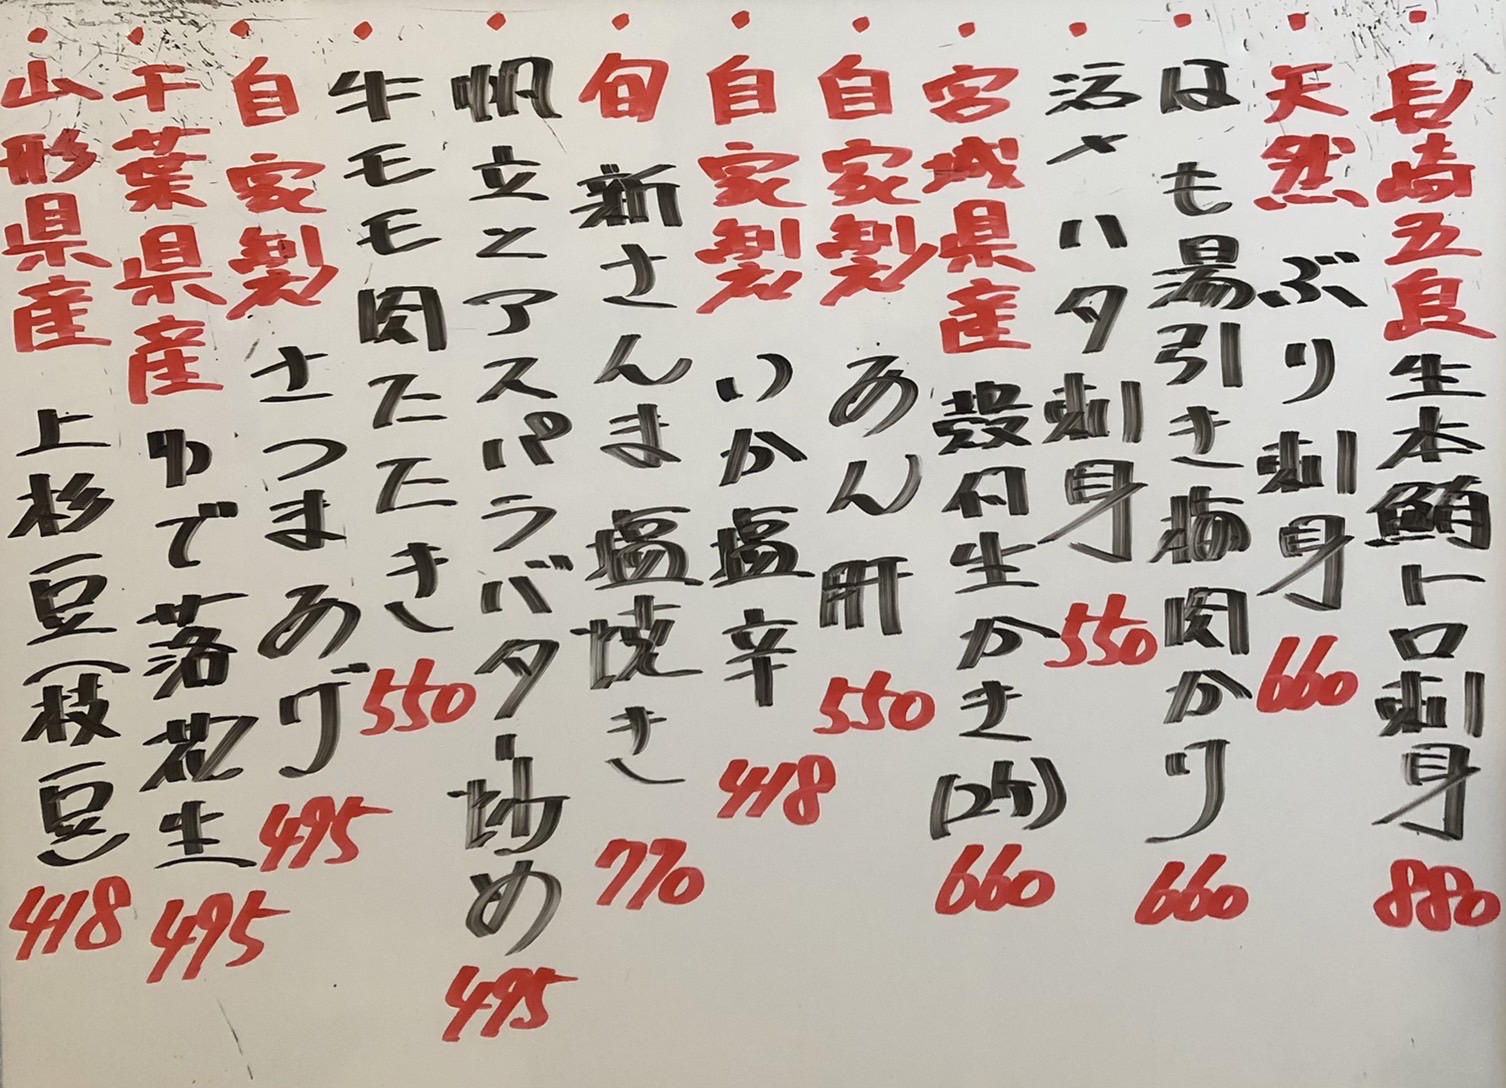 ・長崎五島生本鮪トロ刺身880
・天然ぶり刺身660
・はも湯引き梅肉かけ660
・活〆ハタ刺身550
・宮城県産殻付生かき(2ケ)660
・自家製あん肝550
・自家製いか塩辛418
・旬新さんま塩焼き770
・帆立とアスパラバター炒め495
・牛モモ肉たたき550
・自家製さつまあげ495
・千葉県産ゆで落花生495
・山形県産上杉豆(枝豆)418